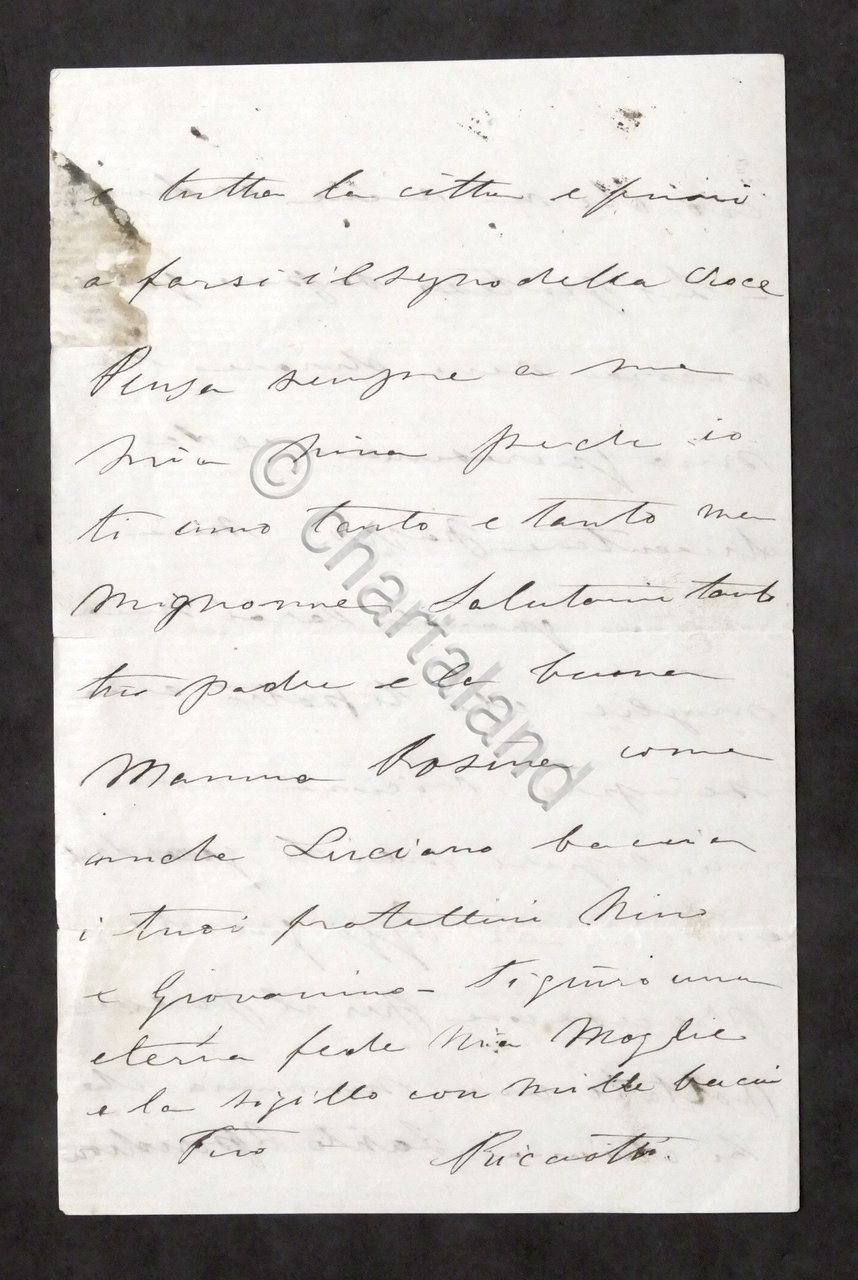 e tutta la citta e fuori
a farsi il segno della Croce
Pensa sempre a me
mia Nina perche io
ti amo tanto e tanto ma
mignonne. Salutami tanto
tuo padre e la buona
Mamma Rosina come
anche Luciano bacia
i tuoi fratellini Nino
e Giovanino - ti giuro una
eterna fede Mia Moglie
e la sigillo con mille baci
Tuo Ricciotti.
© chartaland